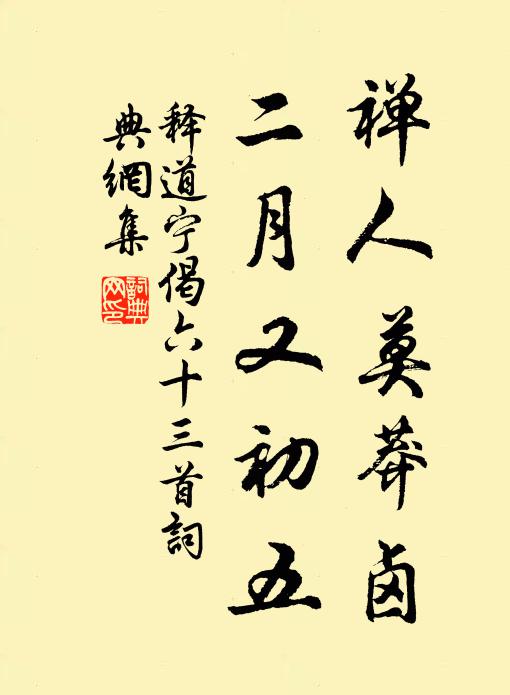 禅人莫莽卤
二月又初五
释道宁偈六十三首詞
典網集
詞典网印